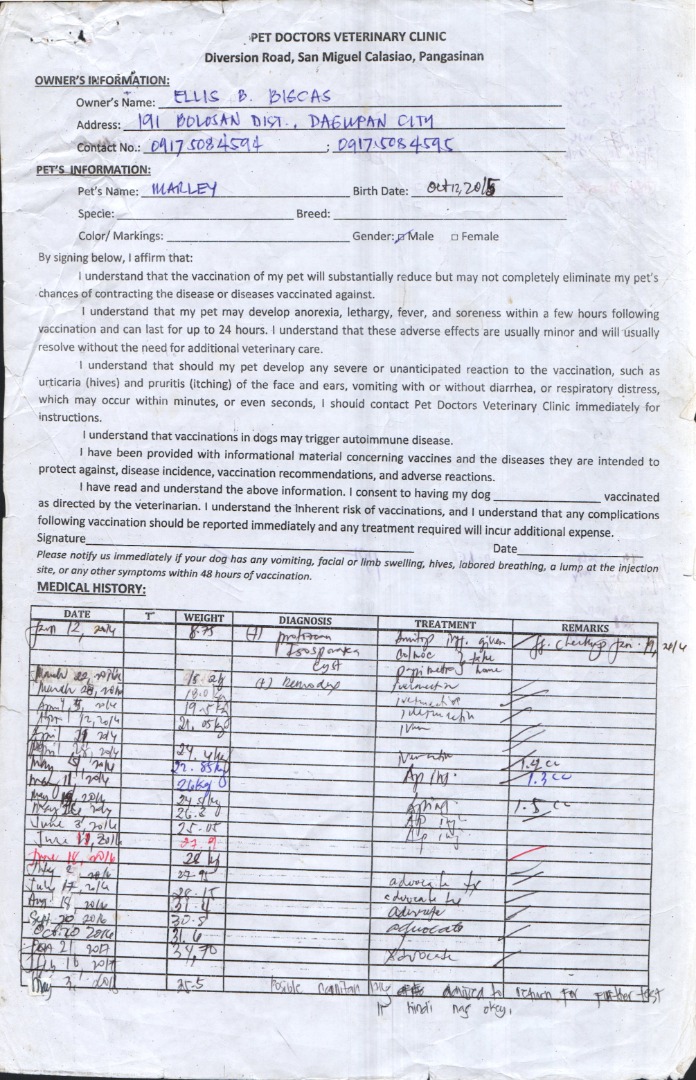 PET DOCTORS VETERINARY CLINIC
Diversion Road, San Miguel Calasiao, Pangasinan
OWNER'S INFORMATION:
Owner's Name: ELLIS B. BISCAS
Address: 191 BOLOSAN DIST., DAGUPAN CITY
Contact No.: 09175084594 ; 09175084595
PET'S INFORMATION:
Pet's Name: MARLEY Birth Date: Oct 12, 2015
Specie: Breed:
Color/ Markings: Gender: Male □ Female
By signing below, I affirm that:
I understand that the vaccination of my pet will substantially reduce but may not completely eliminate my pet's
chances of contracting the disease or diseases vaccinated against.
I understand that my pet may develop anorexia, lethargy, fever, and soreness within a few hours following
vaccination and can last for up to 24 hours. I understand that these adverse effects are usually minor and will usually
resolve without the need for additional veterinary care.
I understand that should my pet develop any severe or unanticipated reaction to the vaccination, such as
urticaria (hives) and pruritis (itching) of the face and ears, vomiting with or without diarrhea, or respiratory distress,
which may occur within minutes, or even seconds, I should contact Pet Doctors Veterinary Clinic immediately for
instructions.
I understand that vaccinations in dogs may trigger autoimmune disease.
I have been provided with informational material concerning vaccines and the diseases they are intended to
protect against, disease incidence, vaccination recommendations, and adverse reactions.
I have read and understand the above information. I consent to having my dog vaccinated
as directed by the veterinarian. I understand the inherent risk of vaccinations, and I understand that any complications
following vaccination should be reported immediately and any treatment required will incur additional expense.
Signature Date
Please notify us immediately if your dog has any vomiting, facial or limb swelling, hives, labored breathing, a lump at the injection
site, or any other symptoms within 48 hours of vaccination.
MEDICAL HISTORY:
DATE T WEIGHT DIAGNOSIS TREATMENT REMARKS
Jan 12, 2016 8.75 (+) given Jan.
cyst home
March 22, 2016 (+) Demodex
March 28, 2016
April 12, 2016 21.05 kg
24.4 kg
22.85 kg 1.2 cc
26 kg 1.3 cc
1.5 cc
June 3, 2016 25.05
June
June 18, 2016 28 kg
27.95
July 17, 2016 28.15 advocate
Aug 18, 2016 31.4 advocate
Sept. 20 2016 30.5 advocate
Oct 20 2016 31.6 advocate
21 2017 34.70
Feb 2017 advocate
May 25.5 Posible advised to return for further test
if hindi nag okey.